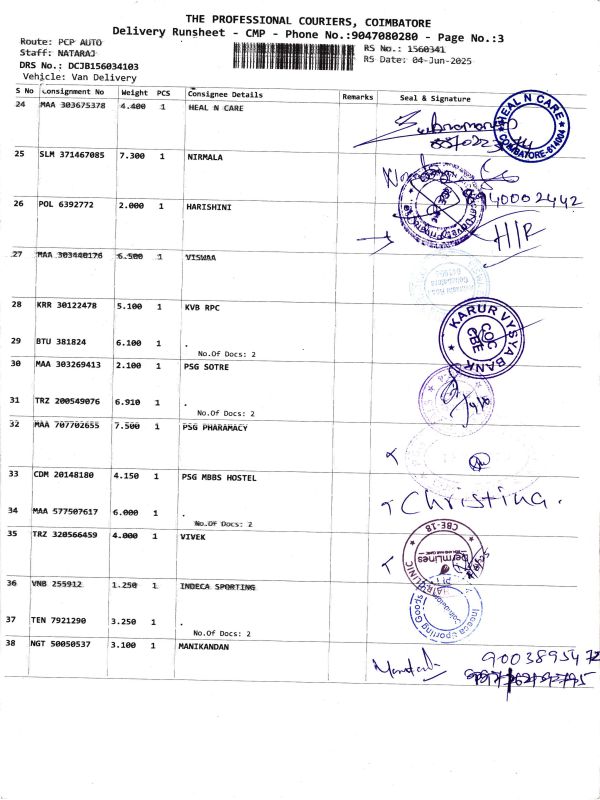 THE PROFESSIONAL COURIERS, COIMBATORE
Delivery Runsheet - CMP - Phone No.:9047080280 - Page No.:3
Route: PCP AUTO
Staff: NATARAJ
DRS No.: DCJB156034103
Vehicle: Van Delivery
RS No.: 1560341
RS Date: 04-Jun-2025
S No Consignment No Weight PCS Consignee Details Remarks Seal & Signature
24 MAA 303675378 4.400 1 HEAL N CARE
HEAL N CARE
COIMBATORE-614004
25 SLM 371467085 7.300 1 NIRMALA
26 POL 6392772 2.000 1 HARISHINI
9940002442
H/R
27 MAA 303440176 6.500 1 VISWAA
28 KRR 30122478 5.100 1 KVB RPC
KARUR VYSYA BANK
COC
CBE
29 BTU 381824 6.100 1 .
No.Of Docs: 2
30 MAA 303269413 2.100 1 PSG SOTRE
31 TRZ 200549076 6.910 1 .
No.Of Docs: 2
32 MAA 707702655 7.500 1 PSG PHARAMACY
33 CDM 20148180 4.150 1 PSG MBBS HOSTEL
Christina.
34 MAA 577507617 6.000 1 .
No.Of Docs: 2
35 TRZ 320566459 4.000 1 VIVEK
CBE-18
DermLines
36 VNB 255912 1.250 1 INDECA SPORTING
Indeca Sporting Goods
Coimbatore
37 TEN 7921290 3.250 1 .
No.Of Docs: 2
38 NGT 50050537 3.100 1 MANIKANDAN
9003895472